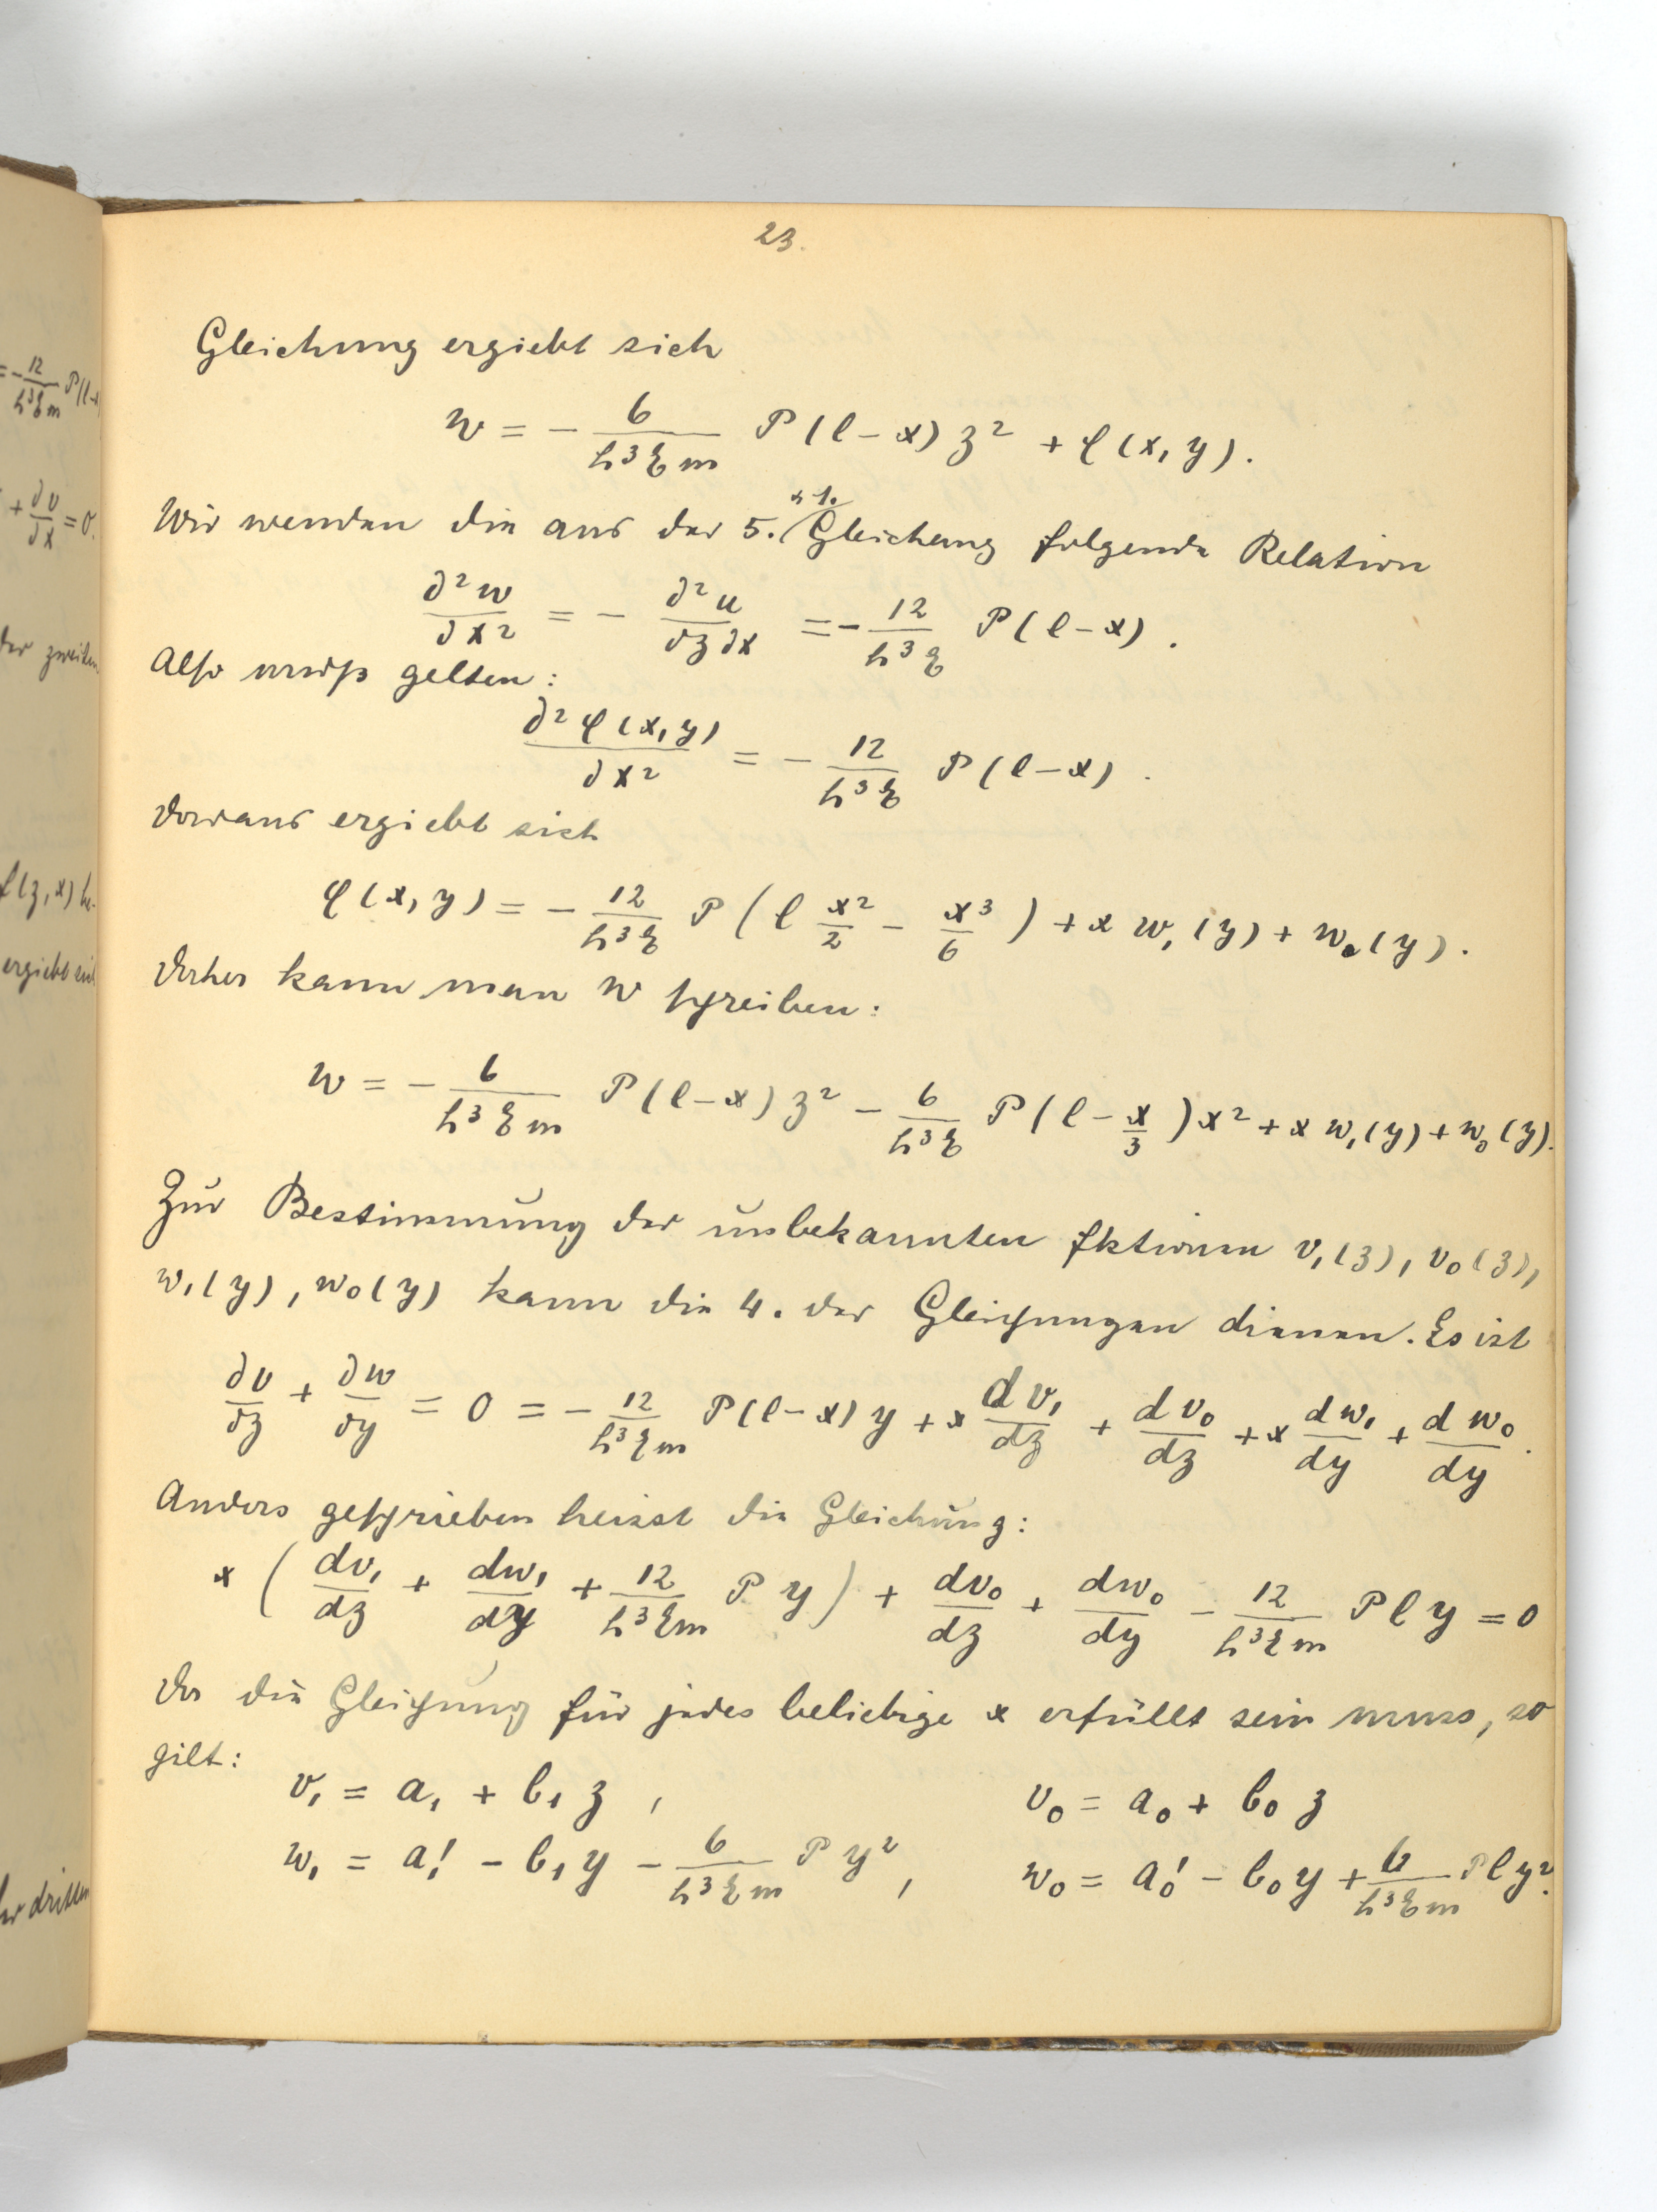 23.
Gleichung ergiebt sich
w = - 6/(h³ξm) P(l-x) z² + φ(x, y).
Wir wenden die aus der 5. u 1. Gleichung folgende Relation
∂²w/∂x² = - ∂²u/∂z∂x = - 12/(h³ξ) P(l-x).
Also muß gelten:
∂²φ(x, y)/∂x² = - 12/(h³ξ) P(l-x).
Daraus ergiebt sich
φ(x, y) = - 12/(h³ξ) P(l x²/2 - x³/6) + x w₁(y) + w₀(y).
Daher kann man w schreiben:
w = - 6/(h³ξm) P(l-x) z² - 6/(h³ξ) P(l - x/3) x² + x w₁(y) + w₀(y).
Zur Bestimmung der unbekannten Fktionen v₁(z), v₀(z),
w₁(y), w₀(y) kann die 4. der Gleichungen dienen. Es ist
∂v/∂z + ∂w/∂y = 0 = - 12/(h³ξm) P(l-x) y + x dv₁/dz + dv₀/dz + x dw₁/dy + dw₀/dy.
Anders geschrieben heisst die Gleichung:
x (dv₁/dz + dw₁/dy + 12/(h³ξm) P y) + dv₀/dz + dw₀/dy - 12/(h³ξm) P l y = 0
Da die Gleichung für jedes beliebige x erfüllt sein muss, so
gilt:
v₁ = a₁ + b₁ z , v₀ = a₀ + b₀ z
w₁ = a₁' - b₁ y - 6/(h³ξm) P y² , w₀ = a₀' - b₀ y + 6/(h³ξm) P l y².
= - 12/(h³ξm) P(l-x
+ ∂v/∂x = 0.
der zweiten
f(z, x) be-
ergiebt sich
der dritten